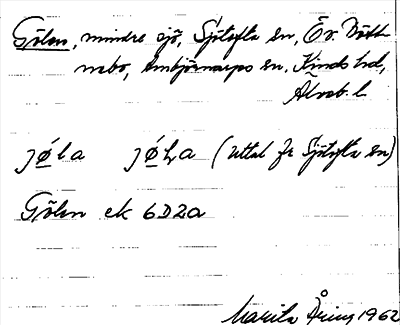 Gölen, mindre sjö, Sjötofta sn, Ö. v. Bött-
nabo, Ambjörnarps sn, Kinds hd,
Älvsb. l.
jǿla jǿⱨa (uttal fr Sjötofta sn)
Gölen ek 6D2a
Marita Åring 1962